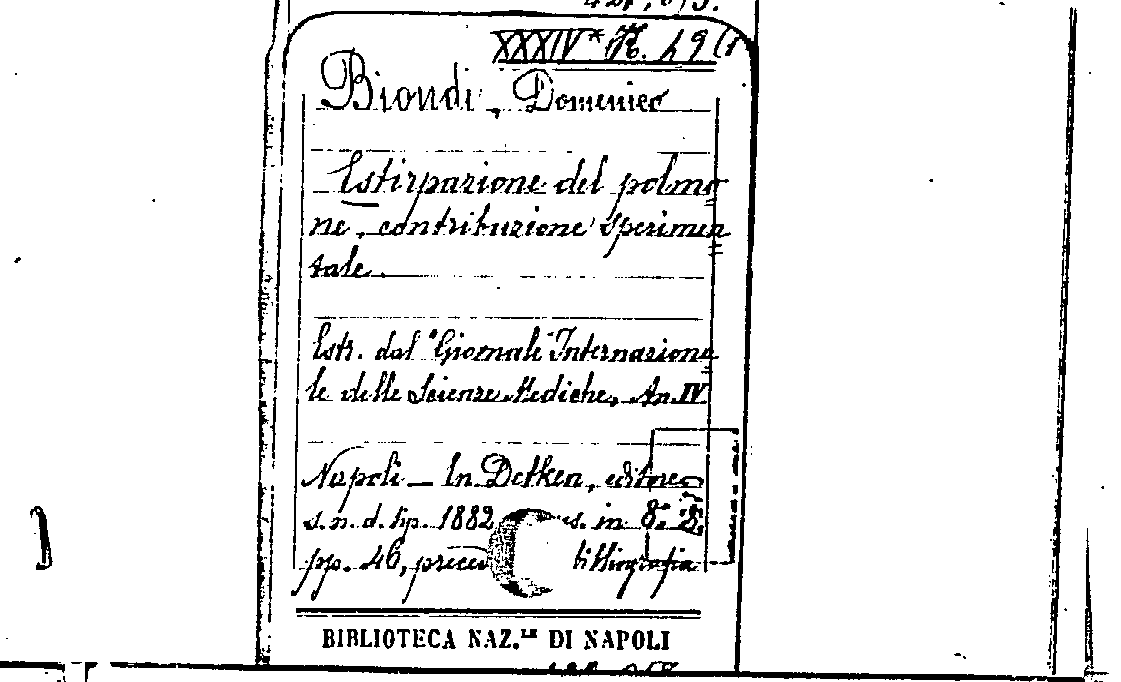 XXXIV* K. 49 (1
Biondi, Domenico
Estirpazione del polmo
ne, contribuzione sperimen
tale.
Estr. dal "Giornale Internaziona
le delle Scienze Mediche, An. IV
Napoli — In Detken, editore
s. n. d. tip. 1882 in 8.
pp. 46, bibliografia
BIBLIOTECA NAZ.LE DI NAPOLI